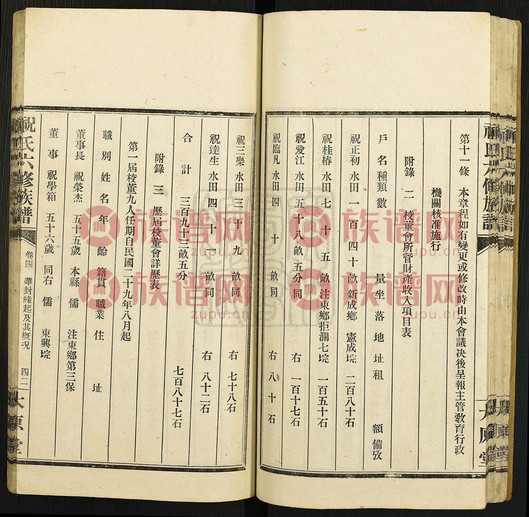 第十一條 本章程如有變更或修改時由本會議決後呈報主管敎育行政
機關核准施行
附錄 二 校董會所管財產收入項目表
戶名 種類 數量 坐落地址 租額 備攷
祝正初 水田 一百四十畝 新成鄉憲成垸 二百一十石
祝桂椿 水田 七十五畝 注東鄉拒瀾七垸 一百五十石
祝愛江 水田 五十畝 同右 一百石
祝臨凡 水田 四十畝 同右 八十石
祝三樂 水田 三十九畝 同右 七十八石
祝達生 水田 四十畝 同右 八十二石
合計 三百九十三畝五分 七百八十七石
附錄 三 歷屆校董會詳歷表
第一屆校董九人任期自民國二十九年八月起
職別 姓名 年齡 籍貫 職業 住址
董事長 祝榮杰 五十五歲 本縣 儒 注東鄉第三保
董事 祝學箱 五十六歲 同右 儒 東興垸
祝氏六修族譜
卷四 華封緣起及其概況 四二 太原堂
族谱网
www.zupu.cn